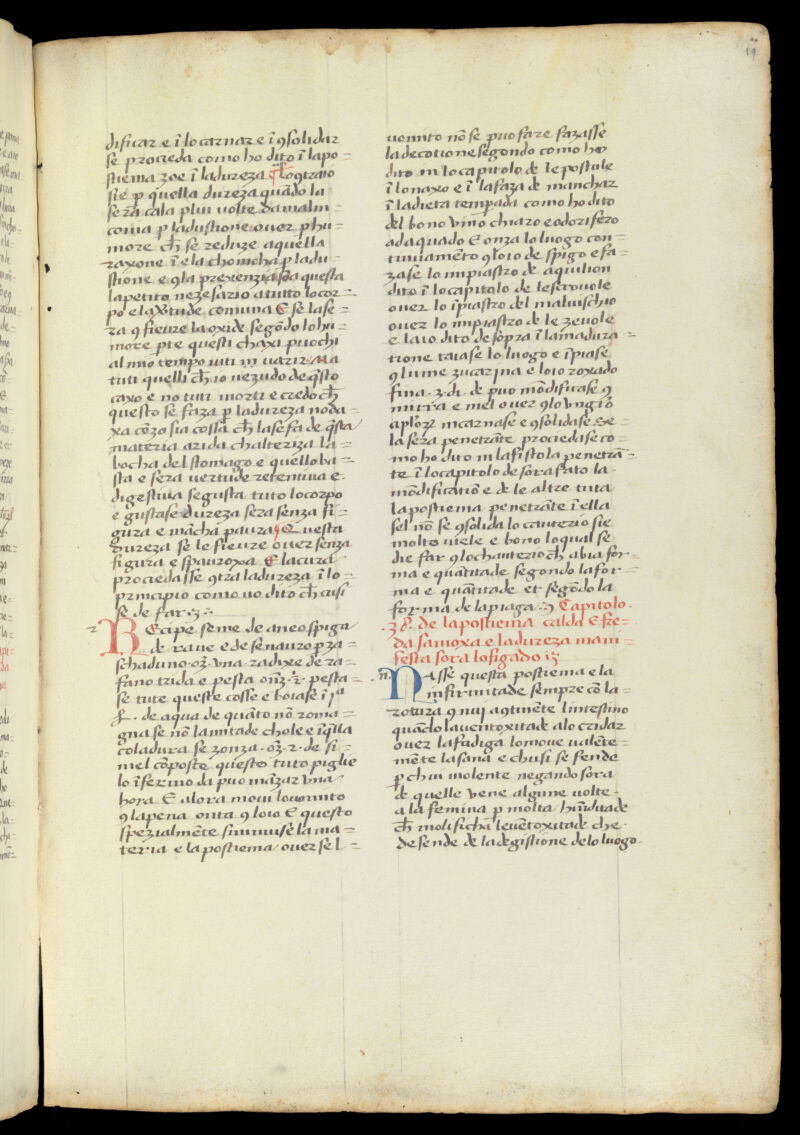 19
dificar e ī locarnar e ī ꝯsolidar
se procieda como ho dito ī lapo=
stiema zoe ī la dureza ¶ Lo ꝯtraio
sie ꝑ quella dureza quādo la
sera cala plui volte da malin=
conia ꝑ ladustione over ꝑ hu=
more ch̄ se reduze a quella
raxone ī e la chomcha ꝑ ladu=
stione e ꝯ la prexenzia soa questa
lapetito nezesario a tutto lo cor=
po e la vtude comuna E se la se=
ra ꝯ fievre la oxide segōdo lo hu=
more ꝑte questi chaxi puochi
al mio tempo viti in varir ma
tuti quelli ch̄ io vezudo de q̄sto
caxo e no tuti morti e credo ch̄
questo se faza ꝑ la dureza noda=
xa cōzo sia cossa ch̄ la se fa de q̄sta
materia arida ch alteriza la=
bocha del stomago e quello ba=
sta e sera vertude retentiva e
digestiva segusta tuto lo corpo
e gustase dureza sera senza fi=
gura e mācha paura ¶ Questa
dureza se le fievre over senza
figura e spauroxa E la cura
prociedasse ꝯtra la dureza ī lo=
principio como vo dito ch̄ cusi
se de far
Recipe seme de aneo spiga
de rave e de senavro ꝑ za=
schaduno oz. vna radixe de ra=
fano trida e pesta onz. 2. pesta=
se tute queste cosse e boiase ī jª
l. de aqua de quāto nō roma=
gna se nō la mitade chole e ī q̄lla
coladura se zonza .oz. 2. de si=
mel cōposte questo tuto piglie
lo īfermo da puo māzar vna
hora E alora movi lo vomito
ꝯ la pena onta ꝯ loio E questo
spezialmēte siminuise la ma=
teria e la postiema over se l=
vomito nō se puo fare fazasse
la decotione segondo como ho
dito in lo capitolo de le postule
ī lo naxo e ī la faza de manchar
ī la dieta temperada como ho dito
del bono vino chiaro e odorifero
adaquado E onza lo luogo con=
tinuiamēto ꝯ loio de spigo e fa=
zase lo impiastro de aquilion
dito ī lo capitolo de le scrovole
over lo ī piastro del malvischio
over lo impiastro de le zevole
e laio dito de sopra ī la madura=
tione taiase lo luogo e īpiase
ꝯ lume zucarina e loio roxado
fina .3. di. de puo mōdificase ꝯ
mirra e mel over ꝯ lo vngēto
aplorz incarnase e ꝯsolidase Se
la sera penetrāte prociedase co=
mo ho dito in la fistola penetrā=
te ī lo capitolo de sora fato la
mōdification e de le altre tuta
la postiema penetrāte ī ella
sel nō se ꝯsolida lo cauterio sie
molto utele e bono lo qual se
die far ꝯ lo chauterio ch̄ abia for=
ma e quātitade segondo la for=
ma e quātitade et segōdo la
forma de la piaga Capitolo
38. de la postiema calda E fre
da samoxa e la dureza mani=
festa sora lo figado
Nasse questa postiema e la
infirmitade sempre cō la=
rotura ꝯ nui aꝯtinēte lintestino
quādo la ventoxitade a lo cridar
over la fadiga lo move valēte=
mēte la sana e chusi se fende
ꝑch nui violente negando sora
de quelle vene algune volte
a la femina ꝑ molta humiditade
ch̄ molificha le ventoxitade che
desende de la degistione de lo luogo